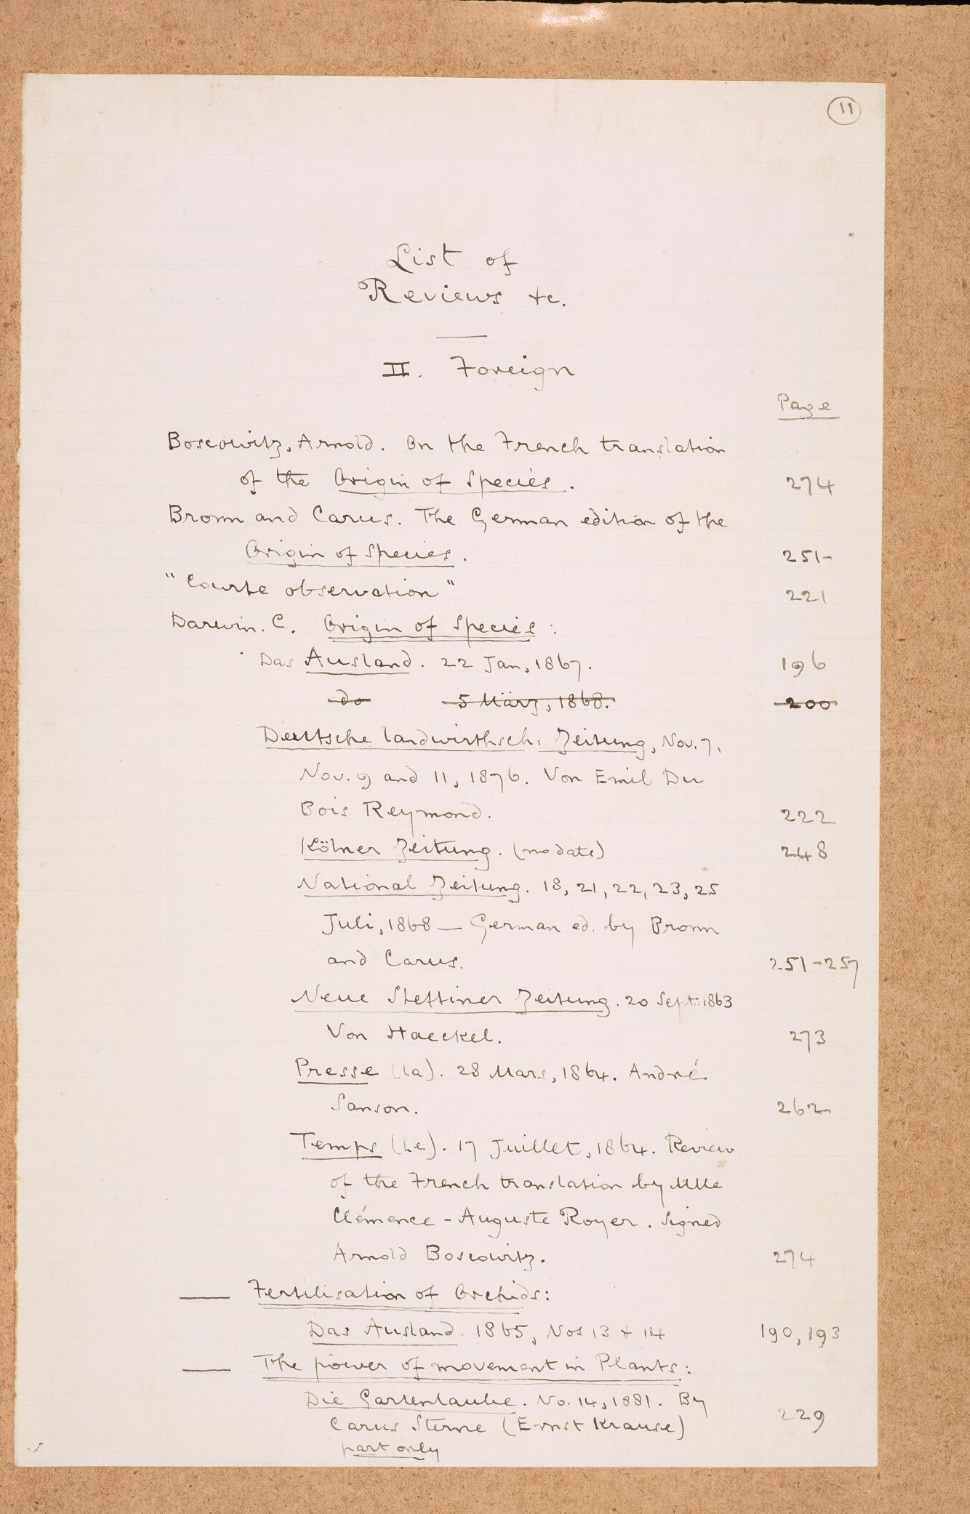 11
List of
Reviews &c.
II. Foreign
Page
Boscowitz, Arnold. On the French translation
of the Origin of Species. 274
Bronn and Carus. The German edition of the
Origin of Species. 251-
"Courte observation" 221
Darwin. C. Origin of Species:
Das Ausland. 22 Jan, 1867. 196
do 5 März, 1868. 200
Deutsche landwirthsch: Zeitung, Nov. 7,
Nov. 9 and 11, 1876. Von Emil Du
Bois Reymond. 222
Kölner Zeitung. (no date) 248
National Zeitung. 18, 21, 22, 23, 25
Juli, 1868 — German ed. by Bronn
and Carus. 251-257
Neue Stettiner Zeitung. 20 Sept: 1863
Von Haeckel. 273
Presse (la). 28 Mars, 1864. André
Sanson. 262
Temps (Le). 17 Juillet, 1864. Review
of the French translation by Mlle
Clémence-Auguste Royer. Signed
Arnold Boscowitz. 274
— Fertilisation of Orchids:
Das Ausland. 1865, Nos 13 + 14 190, 193
— The power of movement in Plants:
Die Gartenlaube. No. 14, 1881. By
Carus Sterne (Ernst Krause) 229
part only